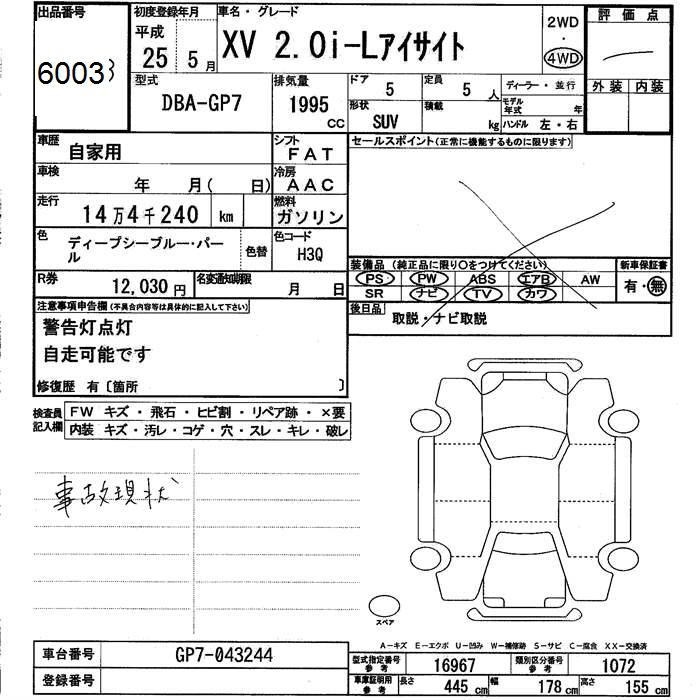 出品番号
60033
初度登録年月
平成
25 5 月
車名・グレード
XV 2.0i-Lアイサイト
2WD
・
4WD
評価点
外装 内装
型式
DBA-GP7
排気量
1995
CC
ドア
5
定員
5 人
ディーラー・並行
形状
SUV
積載
kg
モデル年式
年
ハンドル 左・右
車歴
自家用
シフト
FAT
セールスポイント(正常に機能するものに限ります)
車検
年 月( 日)
冷房
AAC
走行
14万4千240 km
燃料
ガソリン
色
ディープシーブルー・パール
色替
色コード
H3Q
装備品 (純正品に限り○をつけてください)
新車保証書
PS PW ABS エアB AW
有・無
SR ナビ TV カワ
R券
12,030 円
名変通知期限
月 日
後日品
取説・ナビ取説
注意事項申告欄(不具合内容等は具体的に記入して下さい)
警告灯点灯
自走可能です
修復歴 有〔箇所 〕
検査員記入欄
FW キズ・飛石・ヒビ割・リペア跡・×要
内装 キズ・汚レ・コゲ・穴・スレ・キレ・破レ
事故現状
スペア
A-キズ E-エクボ U-凹み W-補修跡 S-サビ C-腐食 XX-交換済
車台番号
GP7-043244
登録番号
型式指定番号
参考
16967
類別区分番号
参考
1072
車庫証明用
参考
長さ
445 cm
幅
178 cm
高さ
155 cm